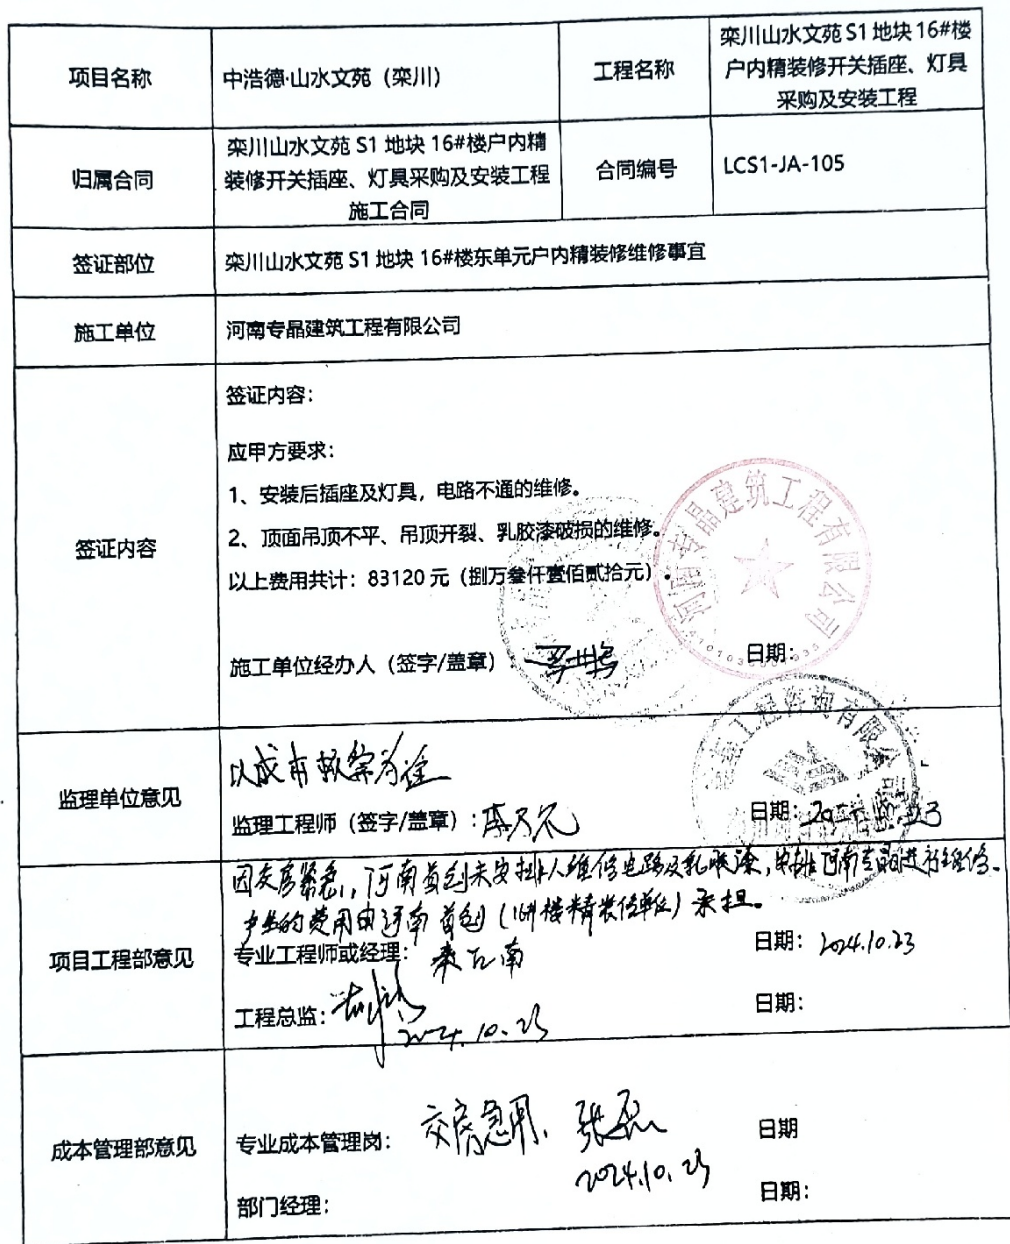 项目名称
中浩德·山水文苑（栾川）
工程名称
栾川山水文苑 S1 地块 16#楼
户内精装修开关插座、灯具
采购及安装工程
归属合同
栾川山水文苑 S1 地块 16#楼户内精
装修开关插座、灯具采购及安装工程
施工合同
合同编号
LCS1-JA-105
签证部位
栾川山水文苑 S1 地块 16#楼东单元户内精装修维修事宜
施工单位
河南专晶建筑工程有限公司
签证内容
签证内容：
应甲方要求：
1、安装后插座及灯具，电路不通的维修。
2、顶面吊顶不平、吊顶开裂、乳胶漆破损的维修。
以上费用共计：83120 元（捌万叁仟壹佰贰拾元）。
河南专晶建筑工程有限公司
施工单位经办人（签字/盖章）
日期：
工程咨询有限公司
监理单位意见
以成本核算为准
监理工程师（签字/盖章）：
日期：
项目工程部意见
因交房紧急，河南首创未安排人维修电路及乳胶漆，安排河南专晶进行维修。
产生的费用由河南首创（16#楼精装修单位）承担。
专业工程师或经理：
日期：2024.10.23
工程总监：
2024.10.23
日期：
成本管理部意见
专业成本管理岗：
交房急用、张磊
日期
2024.10.23
部门经理：
日期：